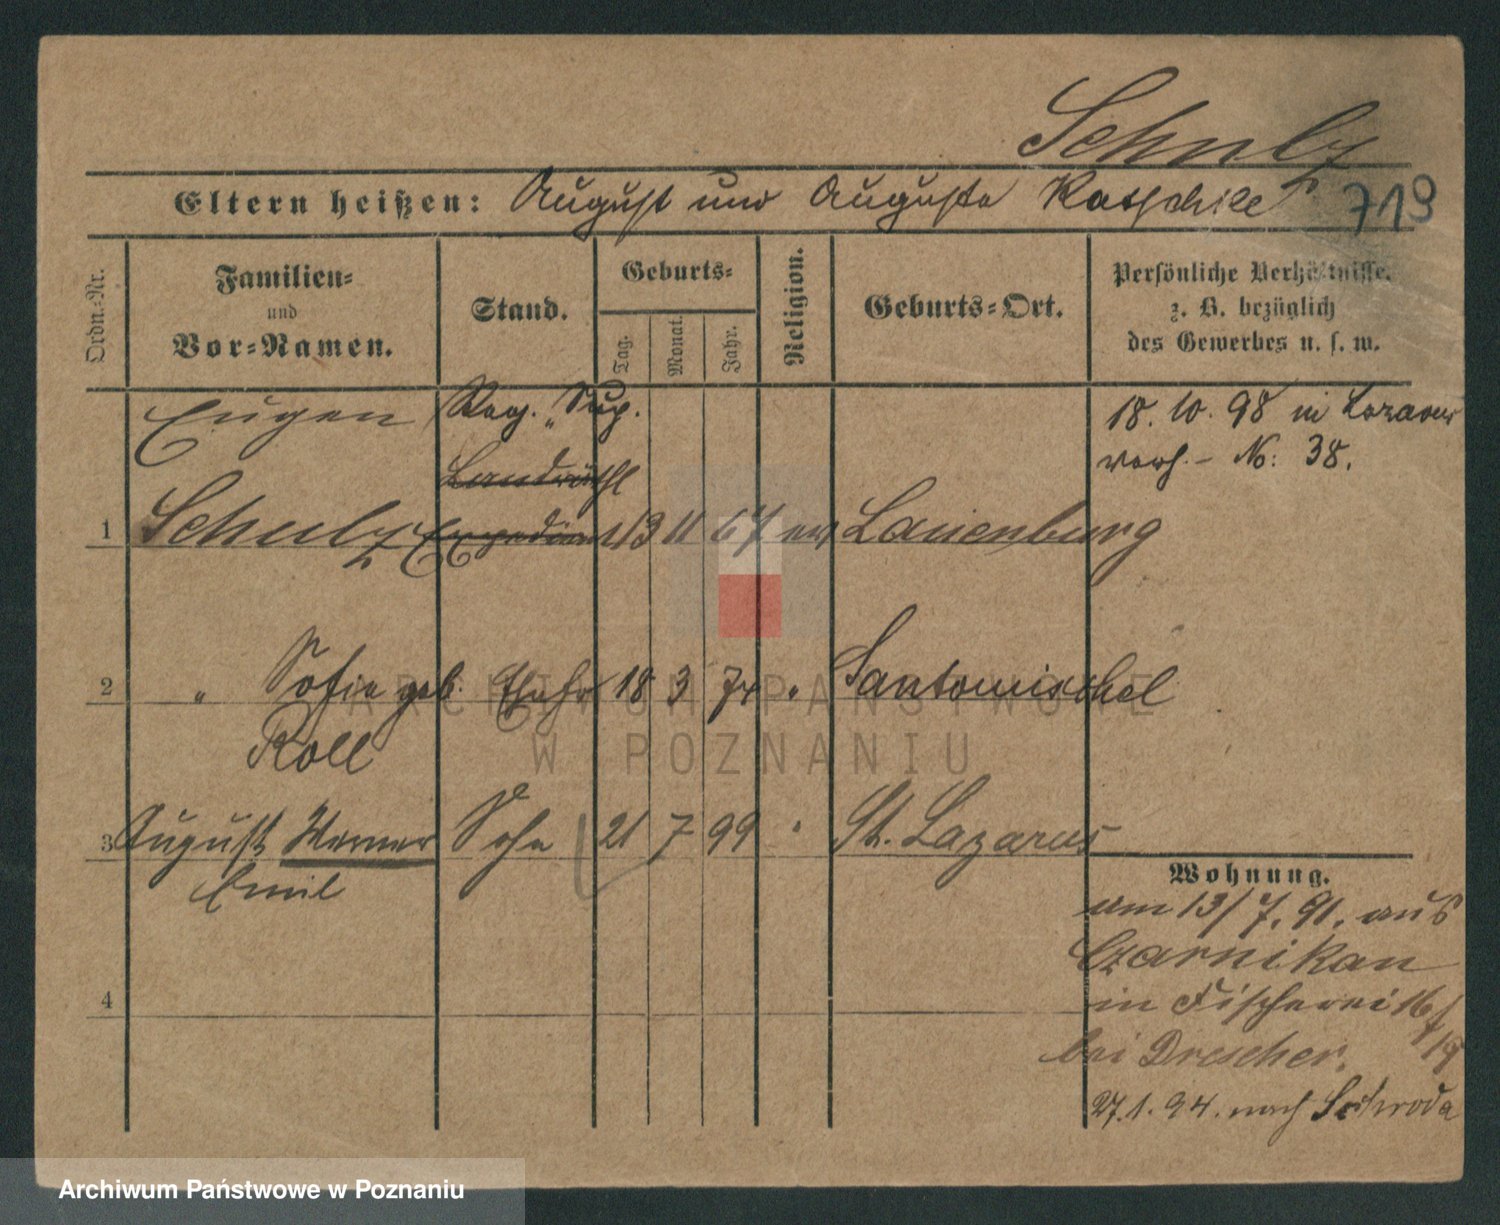 Schulz
Eltern heißen: August und Auguste Ratschke 719
Ordn.-Nr.
Familien-
und
Vor-Namen.
Stand.
Geburts-
Tag.
Monat.
Jahr.
Religion.
Geburts-Ort.
Persönliche Verhältnisse.
z. B. bezüglich
des Gewerbes u. s. w.
Eugen Reg. Sup. 18. 10. 98 in Lazarus
verh. - No: 38.
Landräthl
1 Schulz Expedient 13 11 67 ev Lauenburg
2 " Sofie geb. Ehefr 18 3 74 " Santomischel
Roll
3 August Werner Sohn 21 7 99 " St. Lazarus
Emil
Wohnung.
am 13/7. 91. aus
Czarnikau
4 in Fischerei 16/19
bei Drescher.
27.1.94. nach Schroda
ARCHIWUM PAŃSTWOWE
W POZNANIU
Archiwum Państwowe w Poznaniu